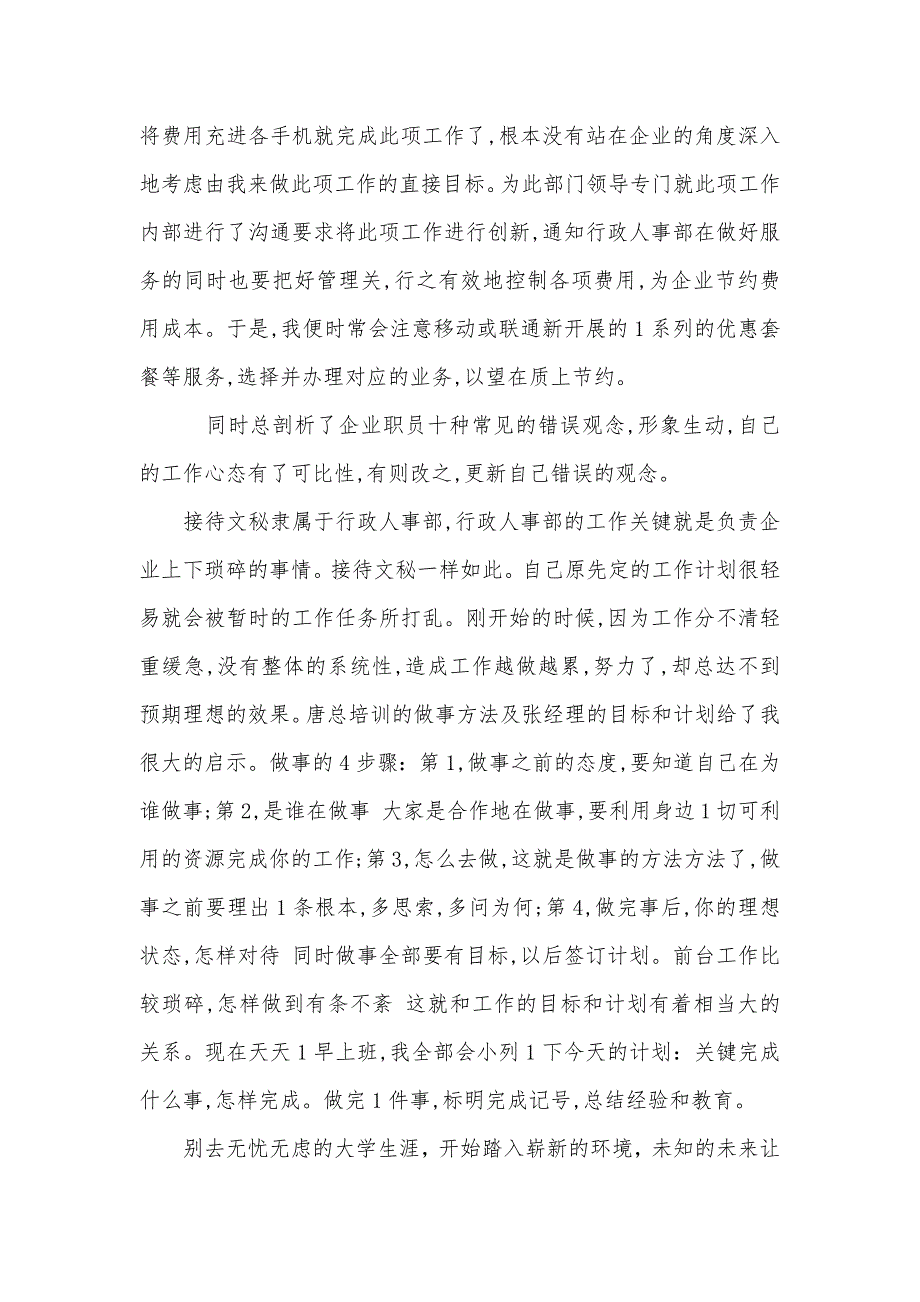 将费用充进各手机就完成此项工作了,根本没有站在企业的角度深入
地考虑由我来做此项工作的直接目标。为此部门领导专门就此项工作
内部进行了沟通要求将此项工作进行创新,通知行政人事部在做好服
务的同时也要把好管理关,行之有效地控制各项费用,为企业节约费
用成本。于是,我便时常会注意移动或联通新开展的1系列的优惠套
餐等服务,选择并办理对应的业务,以望在质上节约。
同时总剖析了企业职员十种常见的错误观念,形象生动,自己
的工作心态有了可比性,有则改之,更新自己错误的观念。
接待文秘隶属于行政人事部,行政人事部的工作关键就是负责企
业上下琐碎的事情。接待文秘一样如此。自己原先定的工作计划很轻
易就会被暂时的工作任务所打乱。刚开始的时候,因为工作分不清轻
重缓急,没有整体的系统性,造成工作越做越累,努力了,却总达不到
预期理想的效果。唐总培训的做事方法及张经理的目标和计划给了我
很大的启示。做事的4步骤：第1,做事之前的态度,要知道自己在为
谁做事;第2,是谁在做事 大家是合作地在做事,要利用身边1切可利
用的资源完成你的工作;第3,怎么去做,这就是做事的方法方法了,做
事之前要理出1条根本,多思索,多问为何;第4,做完事后,你的理想
状态,怎样对待 同时做事全部要有目标,以后签订计划。前台工作比
较琐碎,怎样做到有条不紊 这就和工作的目标和计划有着相当大的
关系。现在天天1早上班,我全部会小列1下今天的计划：关键完成
什么事,怎样完成。做完1件事,标明完成记号,总结经验和教育。
别去无忧无虑的大学生涯，开始踏入崭新的环境，未知的未来让